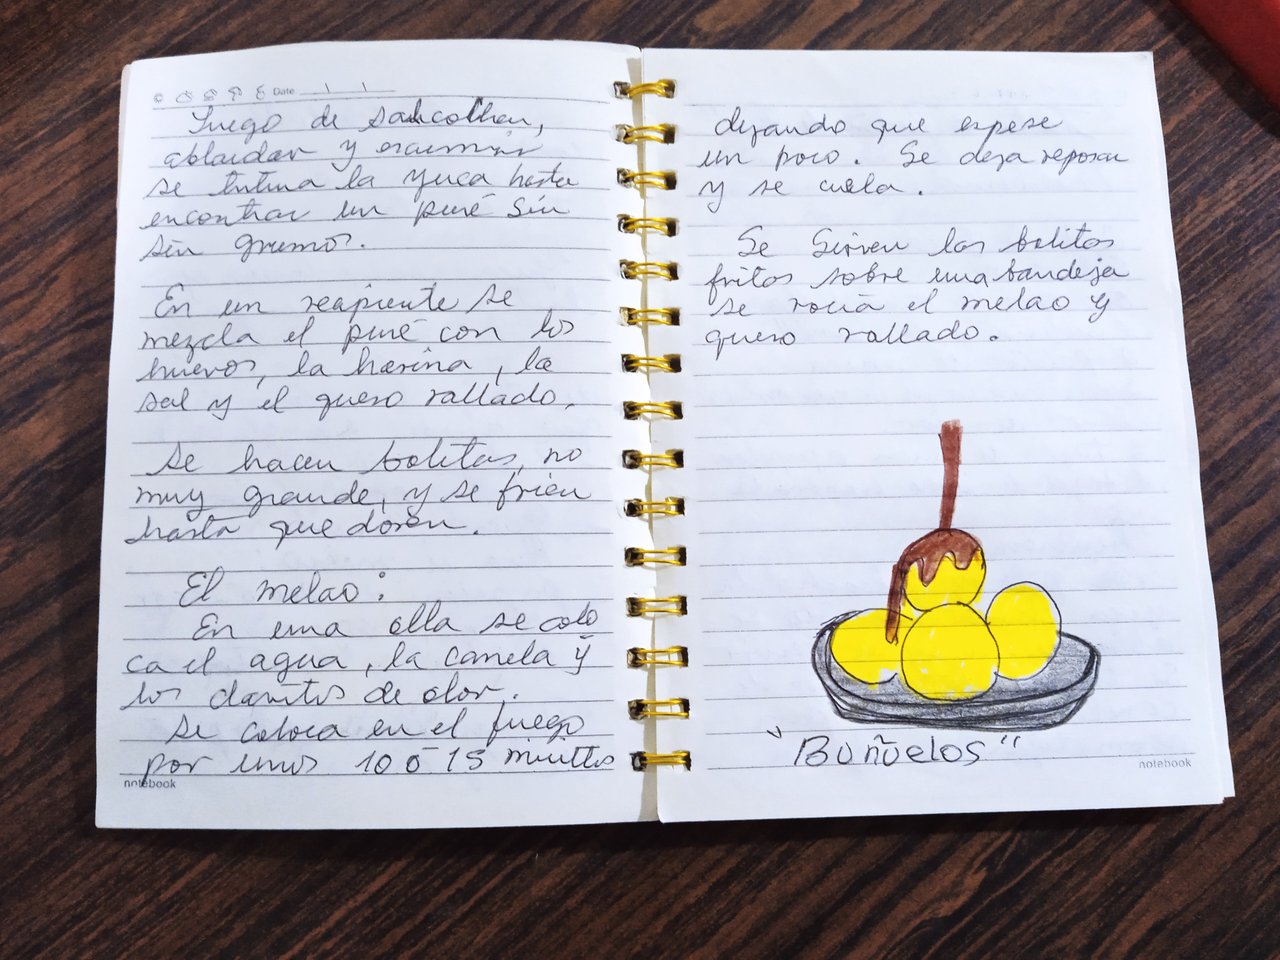 Date
Luego de sancochar,
ablandar y escurrir
se tritura la yuca hasta
encontrar un puré sin
sin grumos.
En un reapiente se
mezcla el puré con los
huevos, la harina, la
sal y el queso rallado.
Se hacen bolitas, no
muy grande, y se frien
hasta que doren.
El melao:
En una olla se colo
ca el agua, la canela y
los clavitos de olor.
Se coloca en el fuego
por unos 10 ó 15 minutos
notebook
dejando que espese
un poco. Se deja reposar
y se cuela.
Se Sirven las bolitas
fritas sobre una bandeja
se rocía el melao y
queso rallado.
"Buñuelos"
notebook